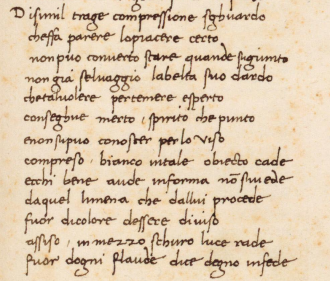 Disimil trage compressione sghuardo
cheffa parere lopiacere certo
non puo coverto stare quandesigiunto
non gia selvaggio labelta suo dardo
chetalvolere pertemere esperto
conseghue merto, spirito che punto
enonsipuo conoscer perlo viso
compreso, bianco intale obiecto cade
echi bene aude informa nō siuiede
daquel lumena che dallui procede
fuor dicolore dessere diviso
assiso, in mezzo schuro luce rade
fuor dogni flaude dice degno infede